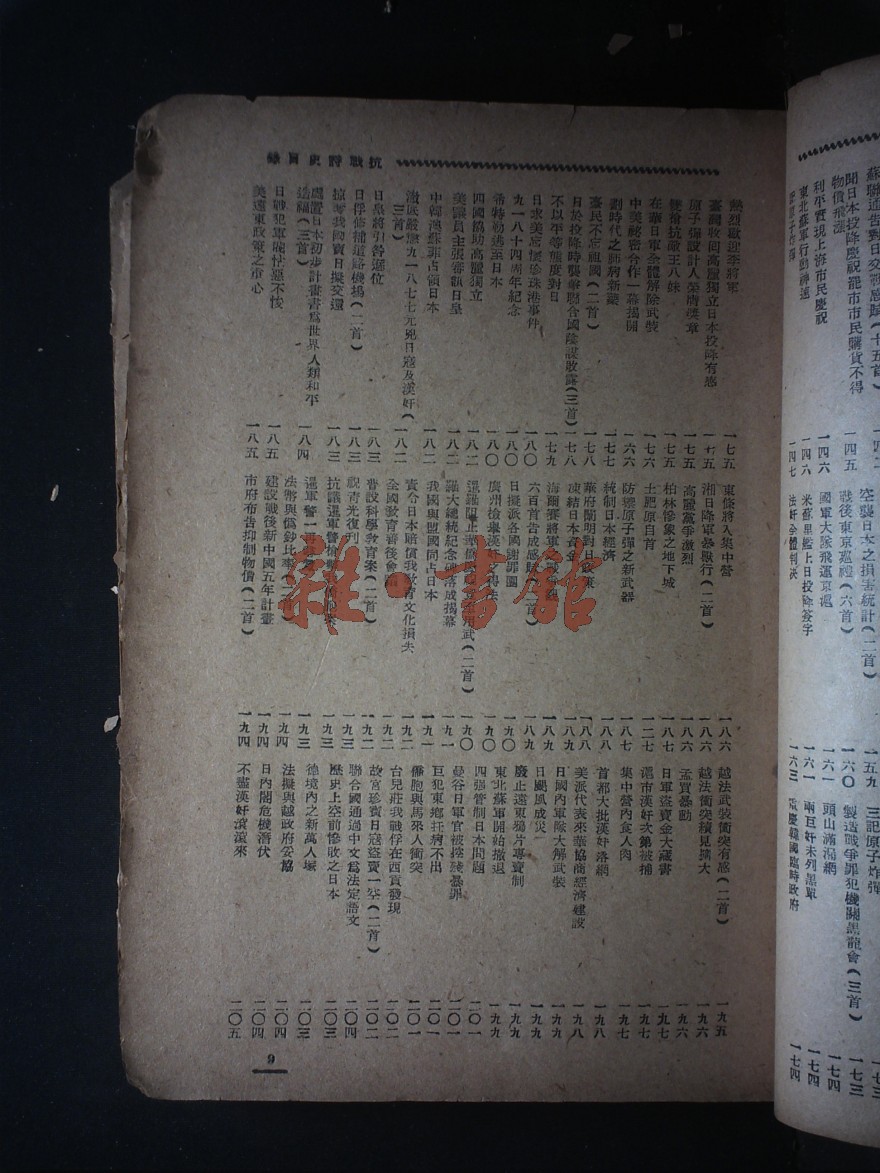 抗戰詩史目錄
熱烈歡迎李將軍 一七五
臺灣收回高麗獨立日本投降有感 一七五
原子彈設計人榮膺獎章 一七五
雙槍抗敵王八妹 一七五
在華日軍全體解除武裝 一七六
中美祕密合作一幕揭開 一六六
劃時代之肺病新藥 一七七
臺民不忘祖國(二首) 一七八
日於投降時襲擊聯合國陰謀敗露(三首) 一七八
不以平等態度對日 一七九
日求美忘懷珍珠港事件 一八〇
九一八十四周年紀念 一八〇
希特勒逃至日本
四國協助高麗獨立 一八〇
美議員主張審訊日皇 一八二
中韓澳蘇菲占領日本 一八二
澈底嚴懲九一八七七元兇日寇及漢奸(三首) 一八二
日皇將引咎遜位 一八三
日俘修補道路機場(二首) 一八三
掠奪我國寶日擬交還 一八三
處置日本初步計畫書爲世界人類和平造福(三首) 一八四
日戰犯軍閥怙惡不悛 一八五
美遠東政策之重心 一八五
東條將入集中營 一八六
湘日降軍暴獸行(二首) 一八六
高麗黨爭激烈 一八六
柏林慘象之地下城 一八七
土肥原自首 一二七
防禦原子彈之新武器 一八七
統制日本經濟 一八八
華府闡明對日政策 一八八
凍結日本資金 一八九
海爾賽將軍
六百首告成感賦 一八九
日擬派各國謝罪團 一九〇
廣州檢舉漢奸
武(二首) 一九〇
羅大總統紀念碑落成揭幕 一九一
我國與盟國同占日本 一九一
責令日本賠償我教育文化損失 一九二
全國教育善後會議 一九二
普設科學教育案(二首) 一九二
觀青光復刊 一九三
抗議暹軍警槍擊 一九三
暹軍警一再 一九三
法幣與僞鈔比率(二首) 一九四
建設戰後新中國五年計畫 一九四
市府布告抑制物價(二首) 一九四
越法武裝衝突有感(二首) 一九五
越法衝突續見擴大 一九六
孟買暴動 一九六
日軍盜賣金大藏書 一九七
滬市漢奸次第被捕 一九七
集中營內食人肉 一九七
首都大批漢奸落網 一九八
美派代表來華協商經濟建設 一九八
日國內軍隊大解武裝 一九九
日颶風成災 一九九
廢止遠東鴉片專賣制 一九九
東北蘇軍開始撤退 一九九
四強管制日本問題 二〇一
曼谷日軍官被控殘暴罪 二〇一
巨犯東鄉狂病不出 二〇一
僑胞與馬來人衝突 二〇一
台兒莊我戰俘在西貢發現 二〇二
故宮珍寶日寇盜賣一空(二首) 二〇二
聯合國通過中文爲法定語文 二〇四
歷史上空前慘敗之日本 二〇三
德境內之新萬人塚 二〇三
法擬與越政府妥協 二〇四
日內閣危機潛伏 二〇四
不盡漢奸滾滾來 二〇五
9
蘇聯通告對日交戰感賦(十五首) 一四二
聞日本投降慶祝罷市市民購貨不得
物價飛漲 一四五
利平實現上海市民慶祝 一四六
東北蘇軍行動神速 一四六
一四七
空襲日本之損害統計(二首) 一五九
戰後東京巡禮(六首) 一六〇
國軍大隊飛運京滬 一六一
米蘇里艦上日投降簽字 一六一
法奸全體判決 一六三
三記原子炸彈 一七三
製造戰爭罪犯機關黑龍會(三首) 一七三
頭山滿漏網 一七四
兩巨奸未列黑單 一七四
重慶韓國臨時政府 一七四
雜·書館